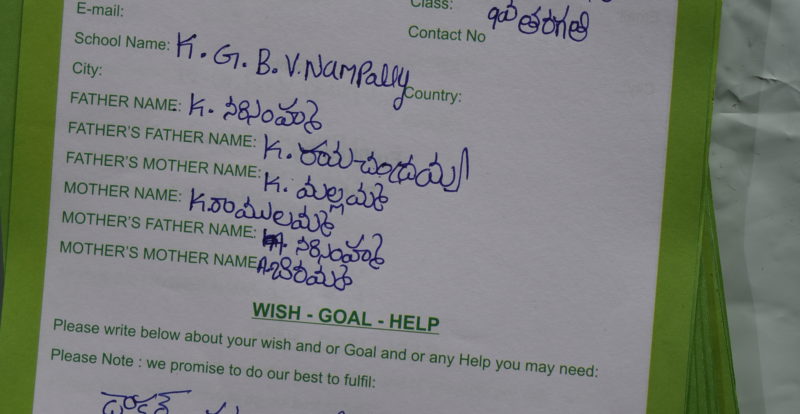 E-mail:
Class: 9వ తరగతి
Contact No
School Name: K. G. B. V. Nampally
City:
Country:
FATHER NAME: K. నర్సింహ్మ
FATHER'S FATHER NAME: K. రామచంద్రయ్య
FATHER'S MOTHER NAME: K. మల్లమ్మ
MOTHER NAME: K. రాములమ్మ
MOTHER'S FATHER NAME: A. నర్సింహ్మ
MOTHER'S MOTHER NAME A. బీరమ్మ
WISH - GOAL - HELP
Please write below about your wish and or Goal and or any Help you may need:
Please Note : we promise to do our best to fulfil: